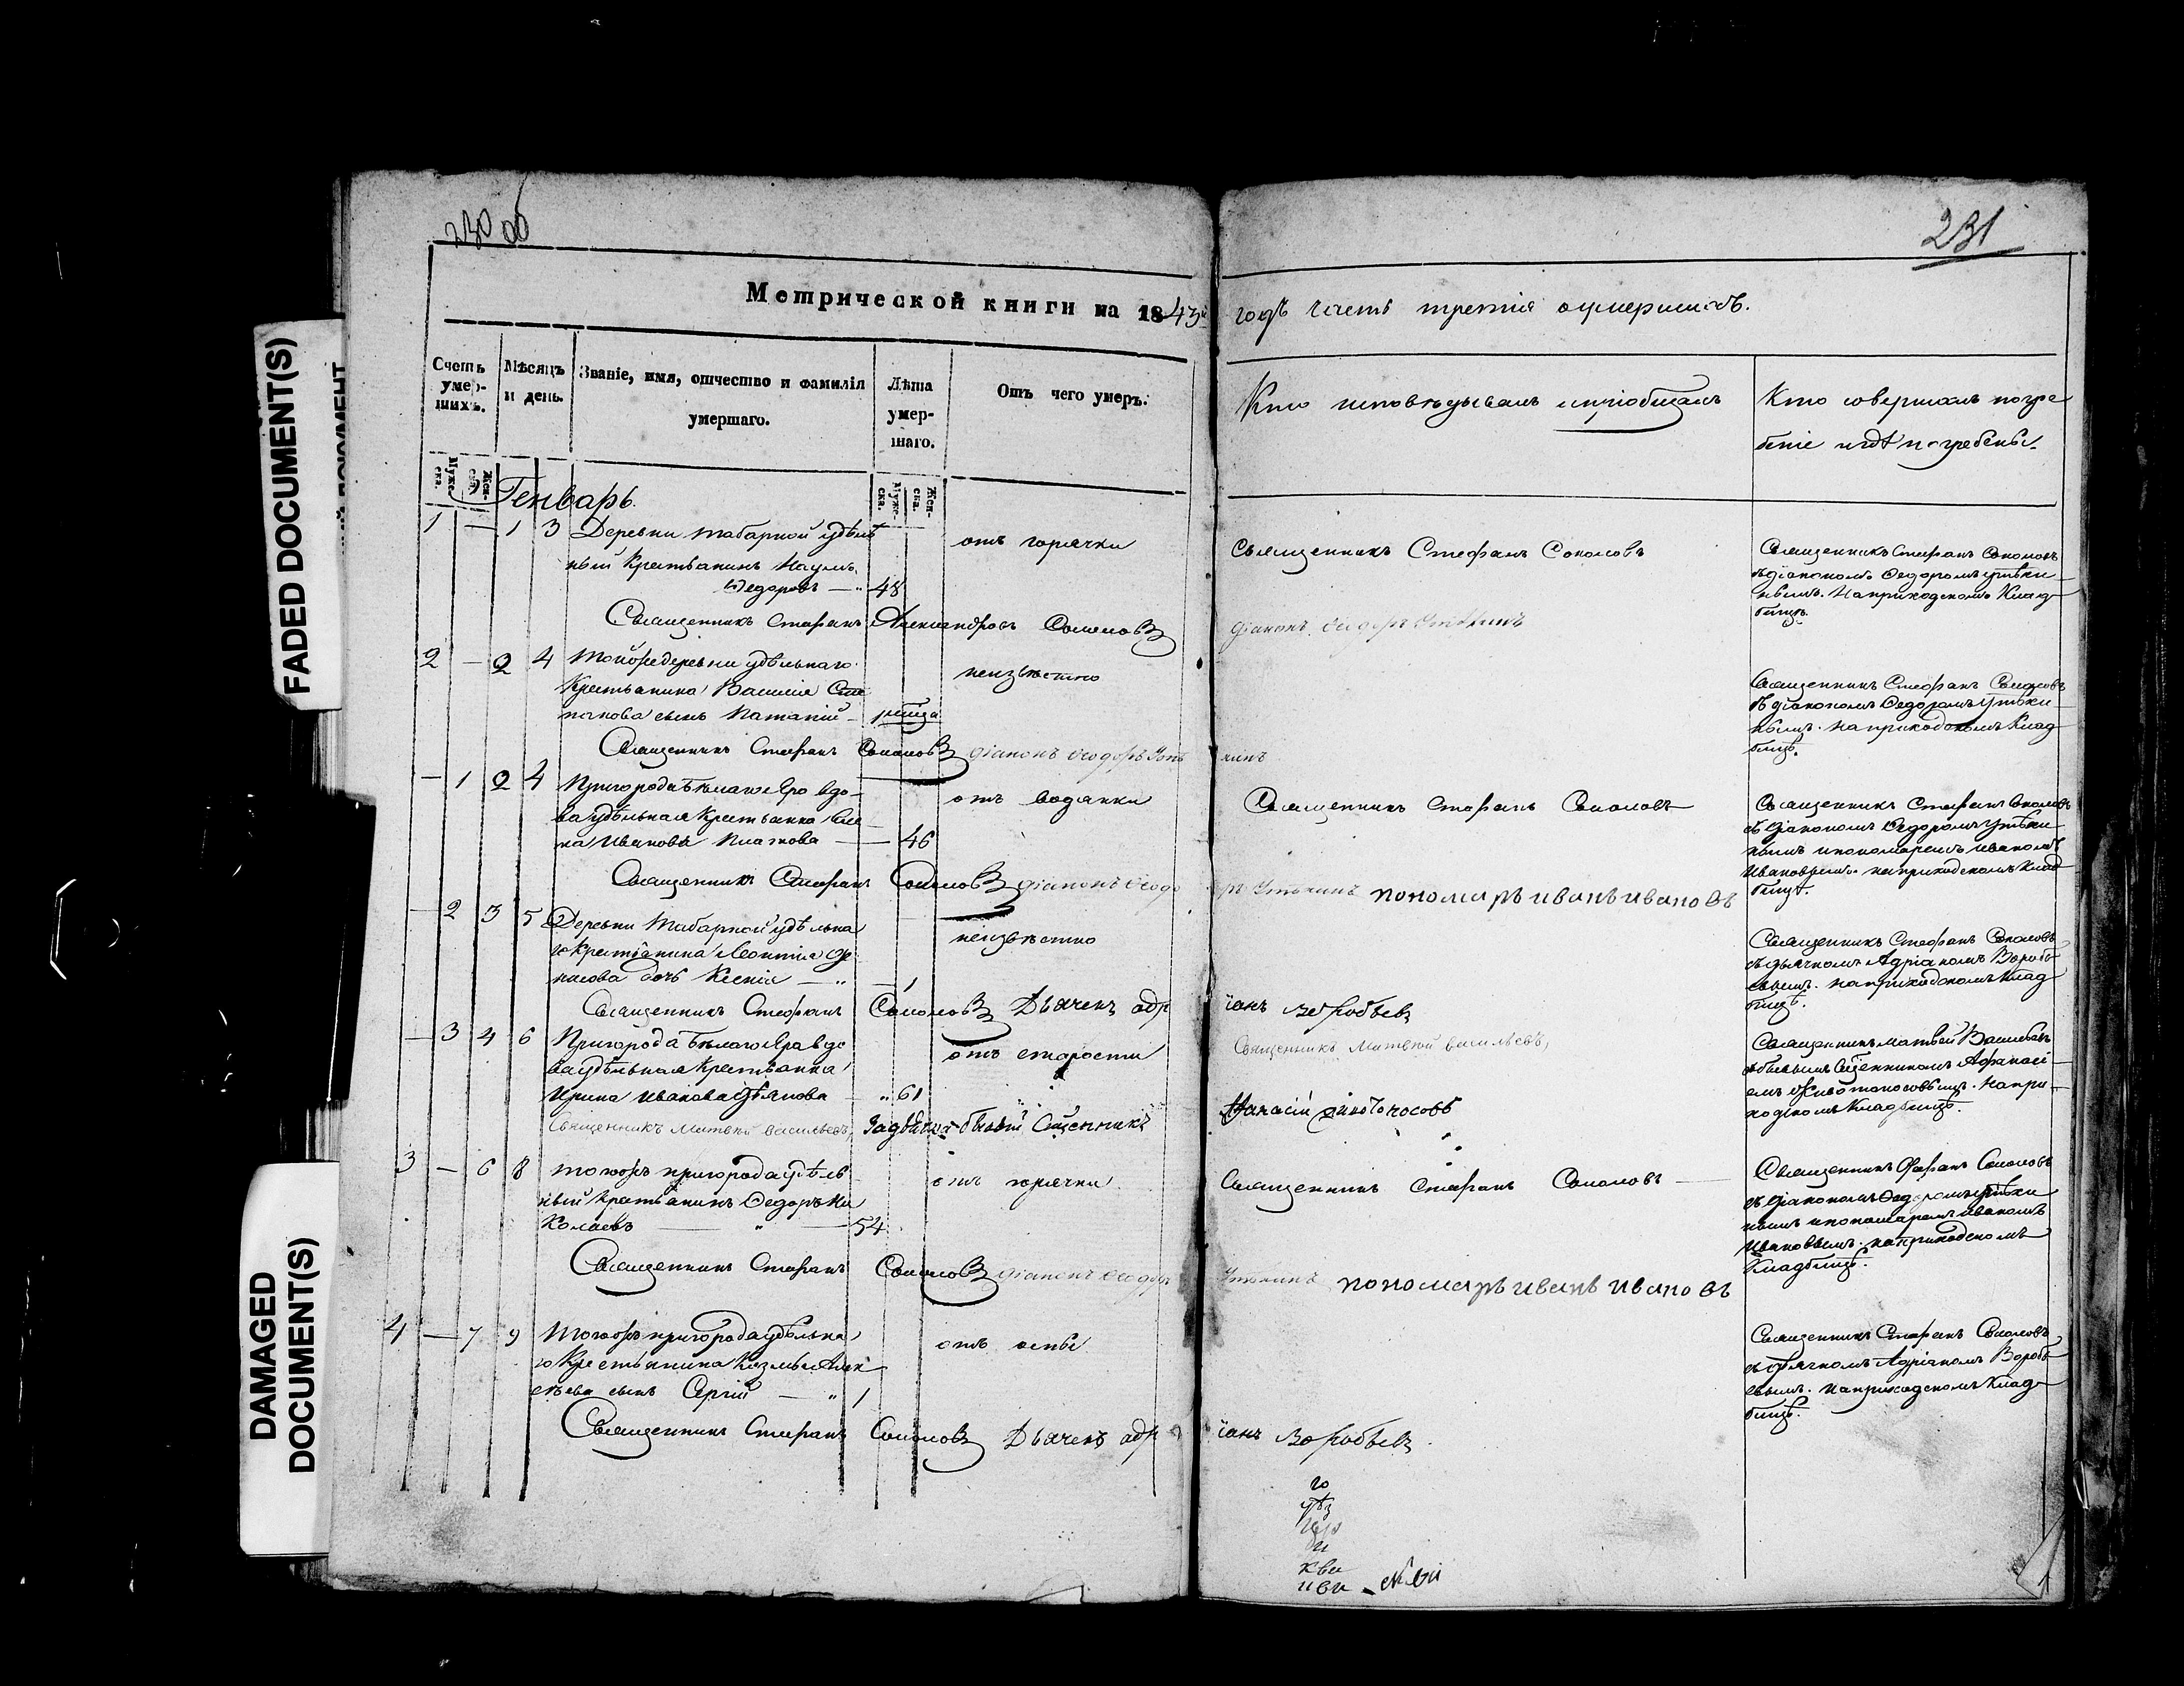 FADED DOCUMENT(S)
DAMAGED
DOCUMENT(S)
230 об
231
Метрической книги на 1843й годъ часть третія оумершихъ.
Счетъ умер-шихъ.
Мѣсяцъ и день.
Званіе, имя, отчество и фамилія умершаго.
Лѣта умер-шаго.
Отъ чего умеръ.
Кто исповѣдывалъ и пріобщалъ
Кто совершалъ погребеніе и гдѣ погребены.
Муже-ска.
Жен-ска.
Муже-ска.
Жен-ска.
Генварь
1 — 1 3 Деревни Табарной удѣль
ный крестьянинъ Наумъ
Ѳедоровъ — 48
отъ горячки
Священникъ Стефанъ Соколовъ
Священникъ Стефанъ Соколовъ
съ діакономъ Ѳедоромъ Утѣки
нымъ. На приходскомъ клад
бищѣ.
Священникъ Стефанъ Александровъ Соколовъ
діаконъ Ѳеодоръ Утѣкинъ
2 — 2 4 Той же деревни удѣльнаго
крестьянина Василія Сте
панова сынъ Потапій —
неизвѣстно
Священникъ Стефанъ Соколовъ
съ діакономъ Ѳедоромъ Утѣки
нымъ. На приходскомъ клад
бищѣ.
Священникъ Стефанъ Соколовъ діаконъ Ѳеодоръ Утѣкинъ
— 1 2 4 Пригорода Бѣлаго Яра вдо
ва удѣльная крестьянка Еле
на Иванова Платкова — 46
отъ водянки
Священникъ Стефанъ Соколовъ
Священникъ Стефанъ Соколовъ
съ діакономъ Ѳедоромъ Утѣки
нымъ и пономаремъ Иваномъ
Ивановымъ. На приходскомъ клад
бищѣ.
Священникъ Стефанъ Соколовъ діаконъ Ѳеодоръ Утѣкинъ пономарь иванъ ивановъ
— 2 3 5 Деревни Табарной удѣльна
го крестьянина Леонтія Де
нисова дочь Ксенія — 1
неизвѣстно
Священникъ Стефанъ Соколовъ
съ дьячкомъ Адріаномъ Воробь
евымъ. На приходскомъ клад
бищѣ.
Священникъ Стефанъ Соколовъ Дьячекъ адріанъ Воробьевъ
— 3 4 6 Пригорода Бѣлаго Яра вдо
ва удѣльная крестьянка
Ирина Иванова — 61
отъ старости
Священникъ Матвей Васильевъ,
Священникъ Матвей Васильевъ
съ бывшимъ Сщенникомъ Афанасі
емъ На при
ходскомъ кладбищѣ.
Священникъ Матвей Васильевъ, бывый Сщенникъ
Афанасій
3 — 6 8 Того жъ пригорода удѣль
ный крестьянинъ Ѳедоръ Ни
колаевъ — 54
отъ горячки
Священникъ Стефанъ Соколовъ —
Священникъ Стефанъ Соколовъ
съ діакономъ Ѳедоромъ Утѣки
нымъ и пономаремъ Иваномъ
Ивановымъ. На приходскомъ
кладбищѣ.
Священникъ Стефанъ Соколовъ діаконъ Ѳеодоръ Утѣкинъ пономарь иванъ ивановъ
4 — 7 9 Того жъ пригорода удѣльна
го крестьянина Козмы Алек
сѣева сынъ Сергій — 1
отъ оспы
Священникъ Стефанъ Соколовъ
съ дьячкомъ Адріаномъ Воробь
евымъ. На приходскомъ клад
бищѣ.
Священникъ Стефанъ Соколовъ Дьячекъ адріанъ Воробьевъ